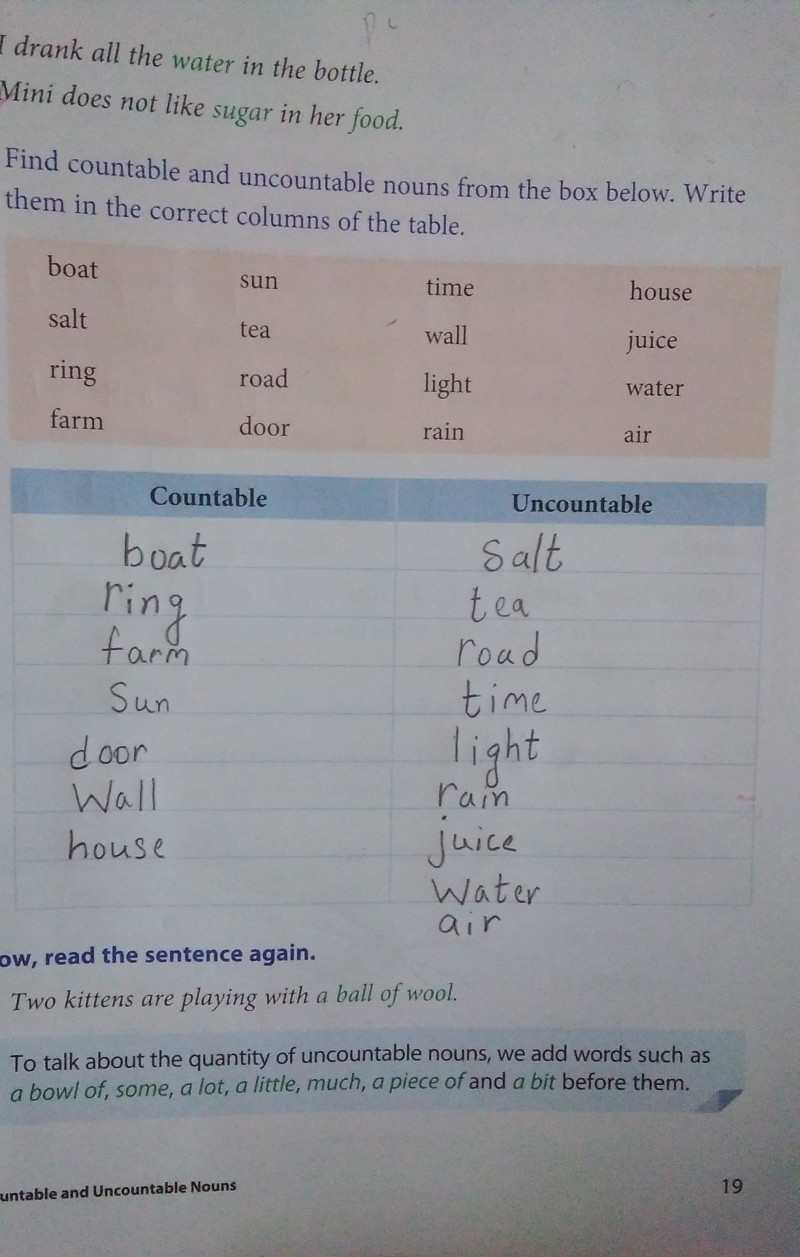 I drank all the water in the bottle.
Mini does not like sugar in her food.
Find countable and uncountable nouns from the box below. Write
them in the correct columns of the table.
boat sun time house
salt tea wall juice
ring road light water
farm door rain air
Countable Uncountable
boat Salt
ring tea
farm road
Sun time
door light
Wall rain
house juice
Water
air
ow, read the sentence again.
Two kittens are playing with a ball of wool.
To talk about the quantity of uncountable nouns, we add words such as
a bowl of, some, a lot, a little, much, a piece of and a bit before them.
untable and Uncountable Nouns 19